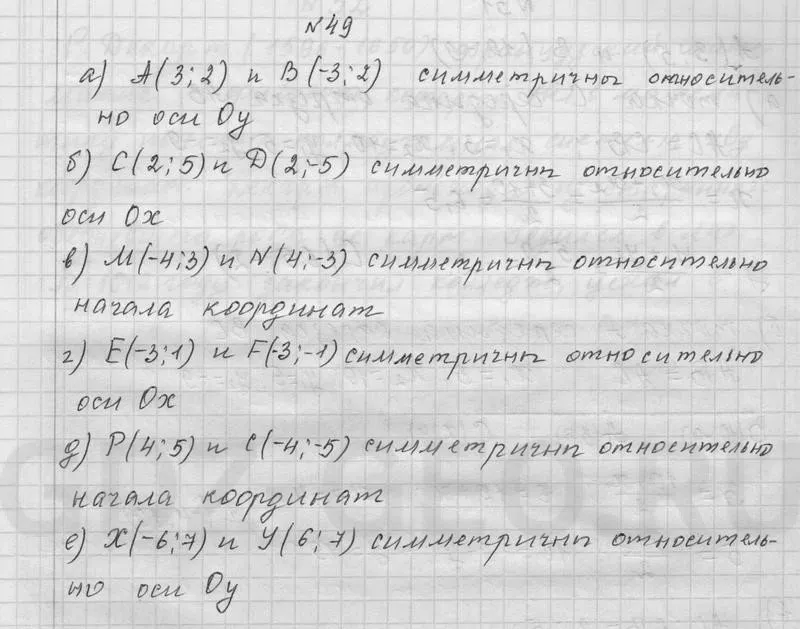 №49
а) А(3;2) и В(-3;2) симметричны относитель-
но оси Оу
б) С(2;5) и Д(2;-5) симметричны относительно
оси Ох
в) М(-4;3) и N(4;-3) симметричны относительно
начала координат
г) Е(-3;1) и F(-3;-1) симметричны относительно
оси Ох
д) Р(4;5) и С(-4;-5) симметричны относительно
начала координат
е) Х(-6;7) и У(6;7) симметричны относитель-
но оси Оу